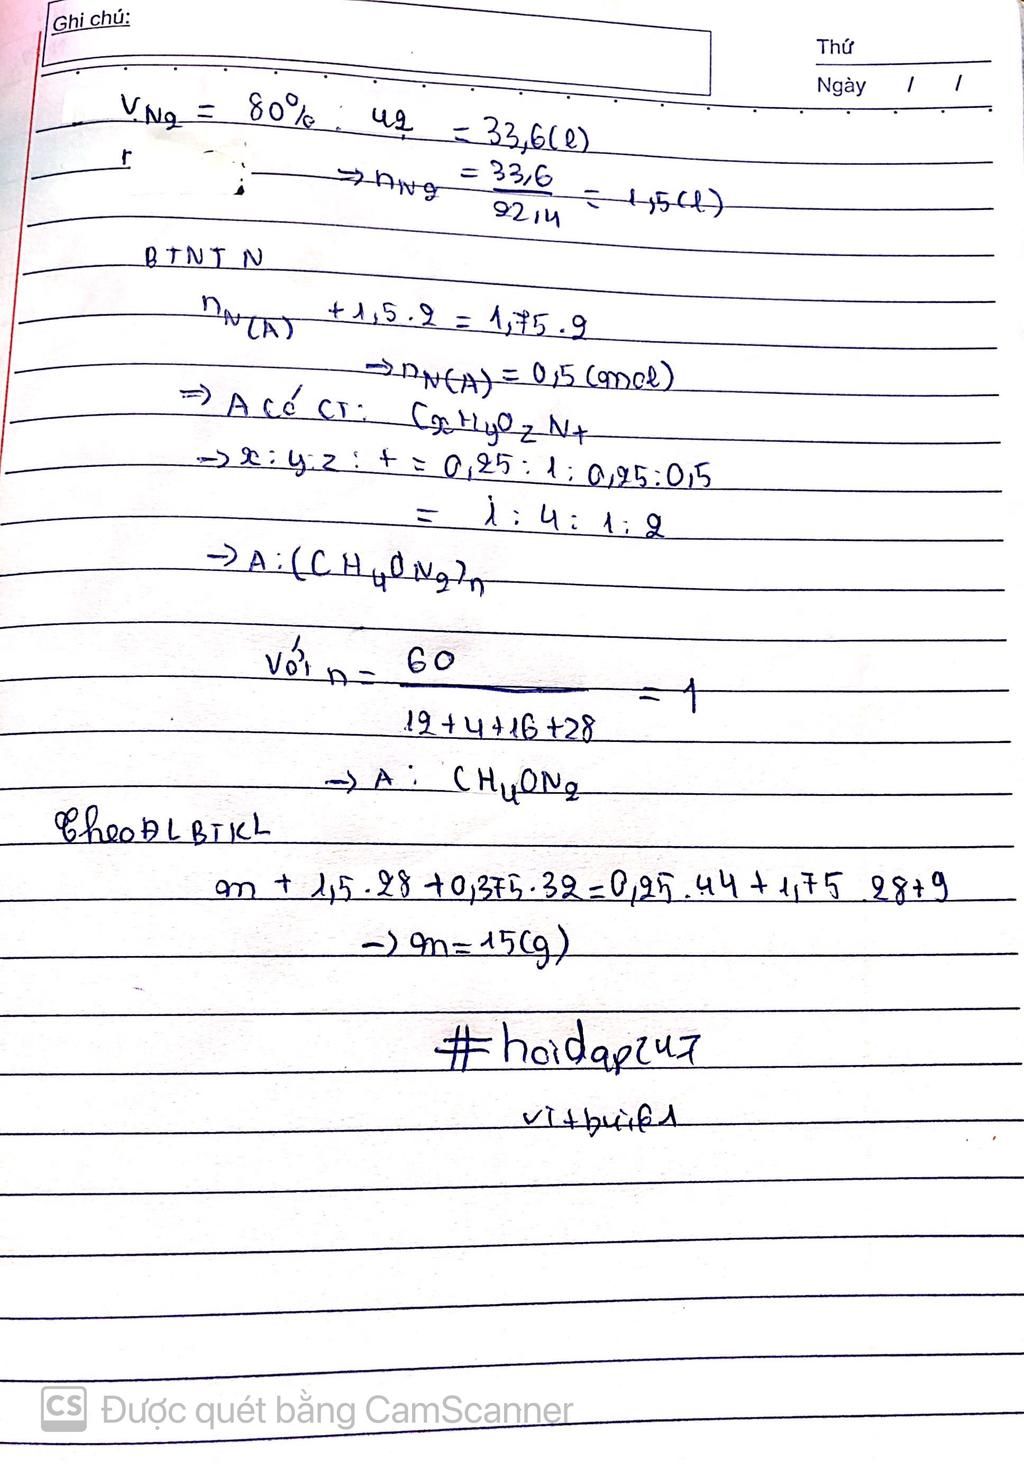 Ghi chú:
Thứ
Ngày / /
V N2 = 80% . 42 = 33,6(l)
r
⇒ nN2 = 33,6 / 22,4 = 1,5(l)
BTNT N
nN(A) + 1,5.2 = 1,75.2
→ nN(A) = 0,5 (mol)
⇒ A có CT: CxHyOzNt
→ x:y:z:t = 0,25:1:0,25:0,5
= 1:4:1:2
→ A:(CH4ON2)n
Với n = 60 / 12+4+16+28 = 1
→ A: CH4ON2
Theo ĐLBTKL
m + 1,5.28 + 0,375.32 = 0,25.44 + 1,75 28+9
→ m = 15(g)
#hoidap247
vitbui61
CS Được quét bằng CamScanner